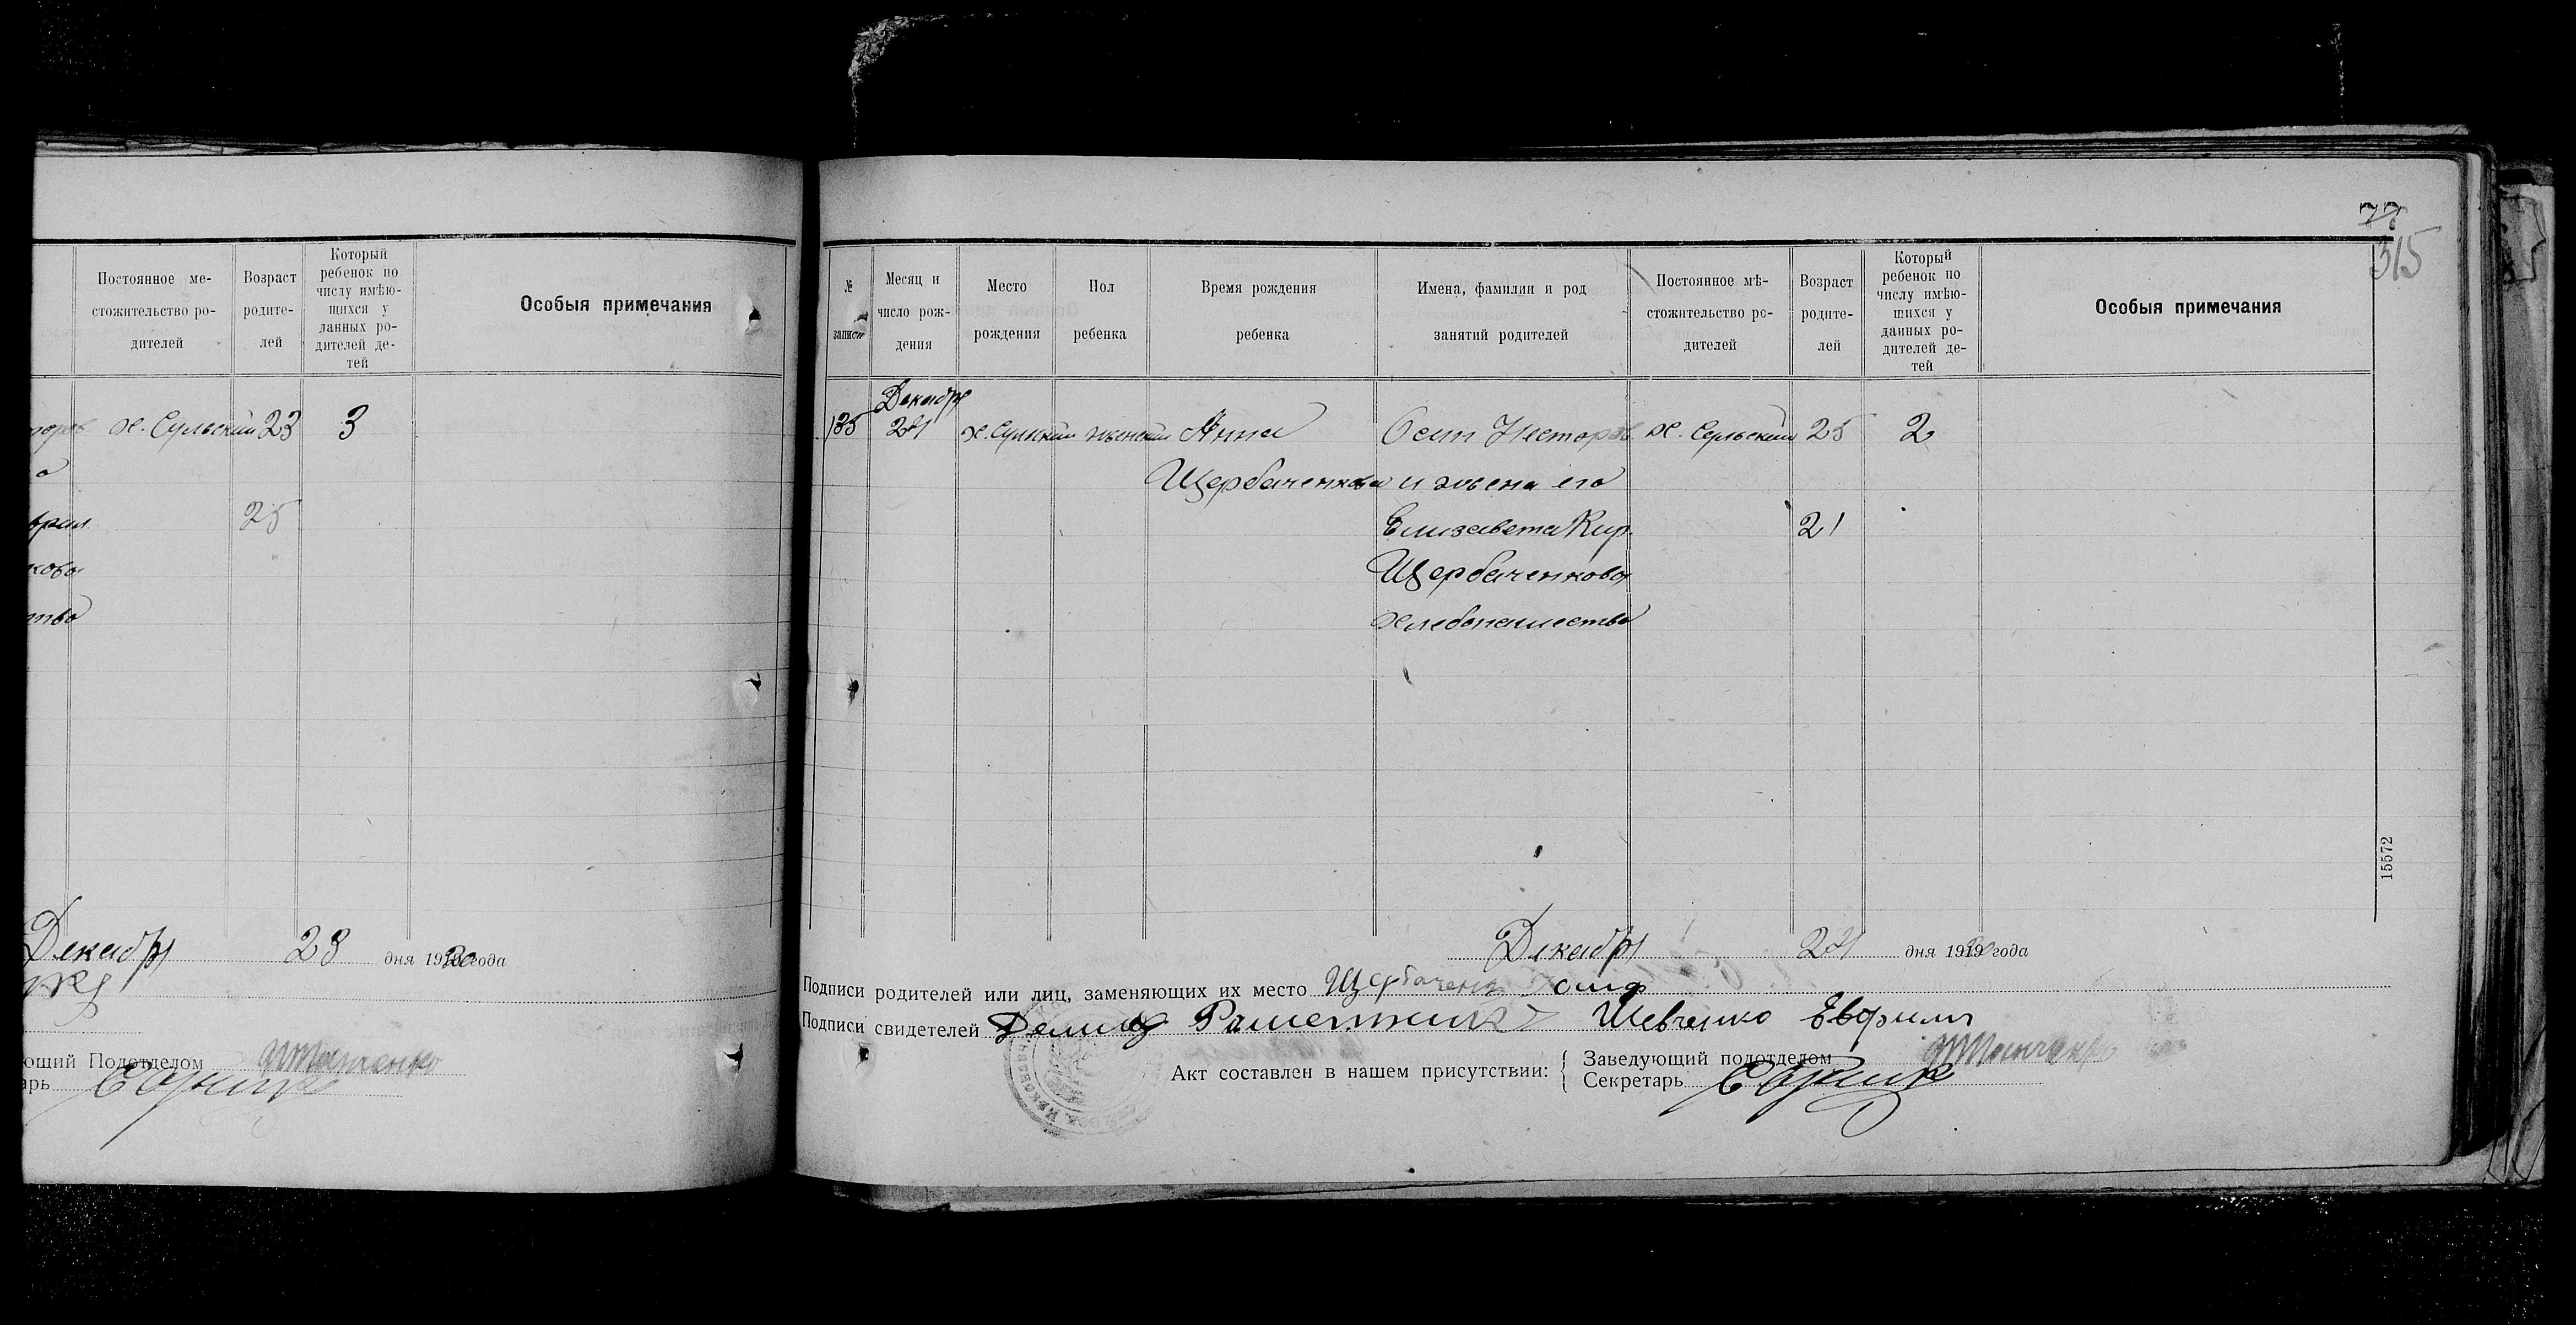 Постоянное ме-
стожительство ро-
дителей
Возраст
родите-
лей
Который
ребенок по
числу имѣю-
щихся у
данных ро-
дителей де-
тей
Особыя примечания
х. Сульский 23 3
25
кова
ство
Декабря 28 дня 1920 года
ющий Подотделом
арь
77
315
№
записи
Месяц и
число рож-
дения
Место
рождения
Пол
ребенка
Время рождения
ребенка
Имена, фамилии и род
занятий родителей
Постоянное мѣ-
стожительство ро-
дителей
Возраст
родите-
лей
Который
ребенок по
числу имѣю-
щихся у
данных ро-
дителей де-
тей
Особыя примечания
Декабря
135 х. Сульский женский Анна Осип Несторов х. Сульский 25 2
Щербаченкова и жена его
Елизавета Кир. 21
Щербаченкова
Хлебопашество
15572
Декабря дня 1919 года
Подписи родителей или лиц, заменяющих их место
Подписи свидетелей Демид Шевченко
Заведующий подотделом
Акт составлен в нашем присутствии:
Секретарь